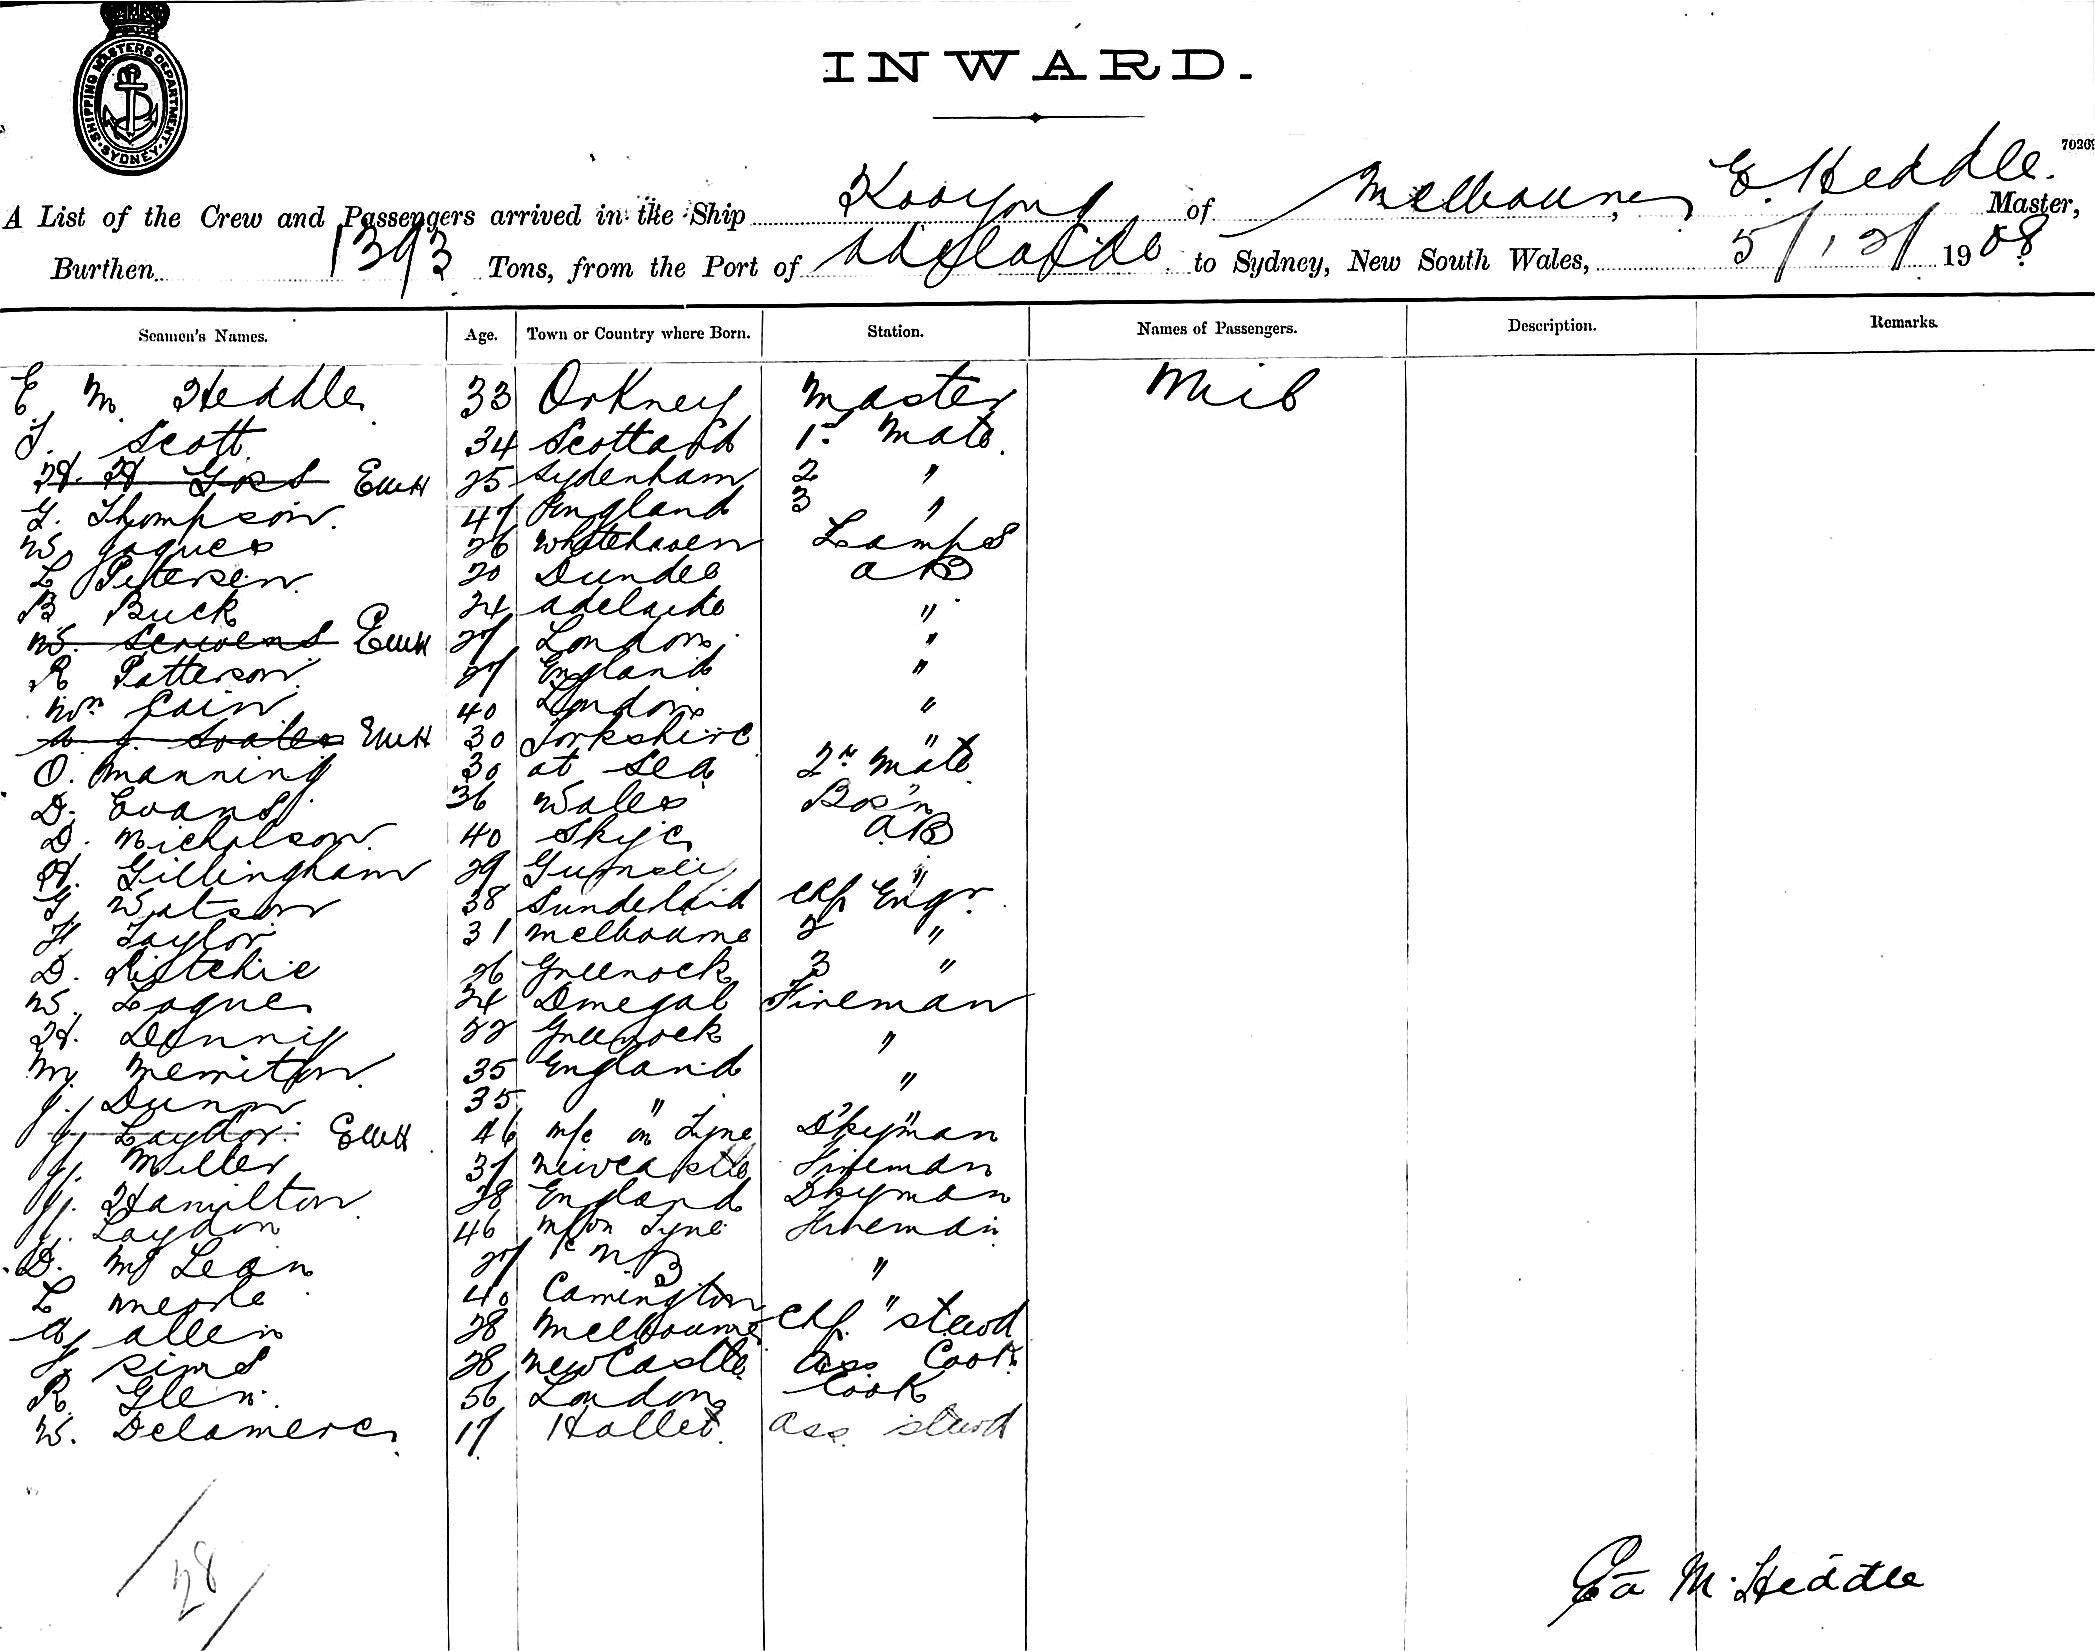 SHIPPING MASTERS DEPARTMENT SYDNEY
INWARD.
70269
A List of the Crew and Passengers arrived in the Ship Kooyong of Melbourne, E. Heddle. Master,
Burthen 1393 Tons, from the Port of Adelaide to Sydney, New South Wales, 5/12/1908
Seamen's Names. Age. Town or Country where Born. Station. Names of Passengers. Description. Remarks.
E M Heddle 33 Orkney Master
J. Scott 34 Scotland 1st Mate
H. H Goss EMH 25 Sydenham 2 "
G. Thompson. 47 England 3 "
W. Jaques 26 Whitehaven Lamps
L Petersen 20 Dundee AB
B Buck 24 Adelaide "
W. Scrivens EMH 27 London "
R Patterson 27 England "
Wm Cain 40 London "
EMH 30 Yorkshire "
O. Manning 30 at Sea 2nd Mate
D. Evans 36 Wales Bos'n
D. Nicholson 40 Skye AB
H. Gillingham 29 "
G. Watson 38 Sunderland Chf Engr.
H Taylor 31 Melbourne 2 "
D. Ritchie 26 Greenock 3 "
W. Logue 24 Donegal Fireman
H. Denny 22 Greenock "
M. 35 England "
J. Dunn 35 " "
J. Laydon EMH 46 n/c on Tyne D'kyman
J. Miller 37 Newcastle Fireman
J. Hamilton 28 England Dkyman
J. Laydon 46 on Tyne Fireman
D. Mc Lean 27 N B "
L 40 "
A J Allen 28 Melbourne Chf. Stewd
J Sims 28 NewCastle Ass. Cook
R. Glen 56 London Cook
W. Delamere 17 Hallet Ass. Stewd
28
Ed M. Heddle